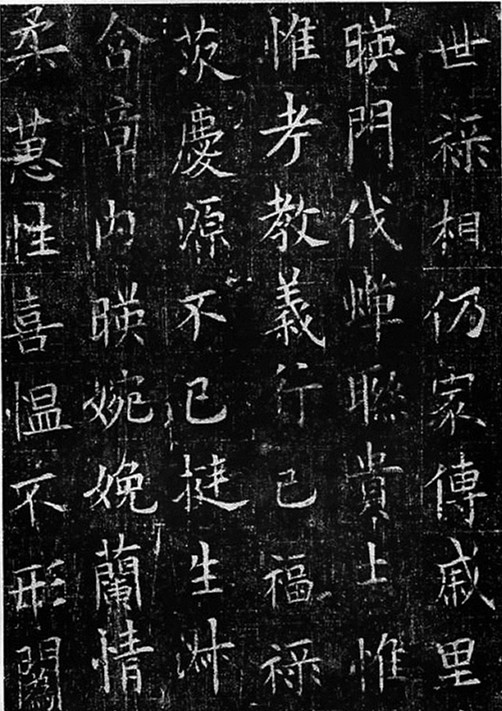 世禄相仍家傳戚里
暎門伐蟬聮貴上惟
惟孝教義行己福禄
茨慶源不已挺生淋
含章内暎婉娩蘭情
柔蕙性喜愠不形閫